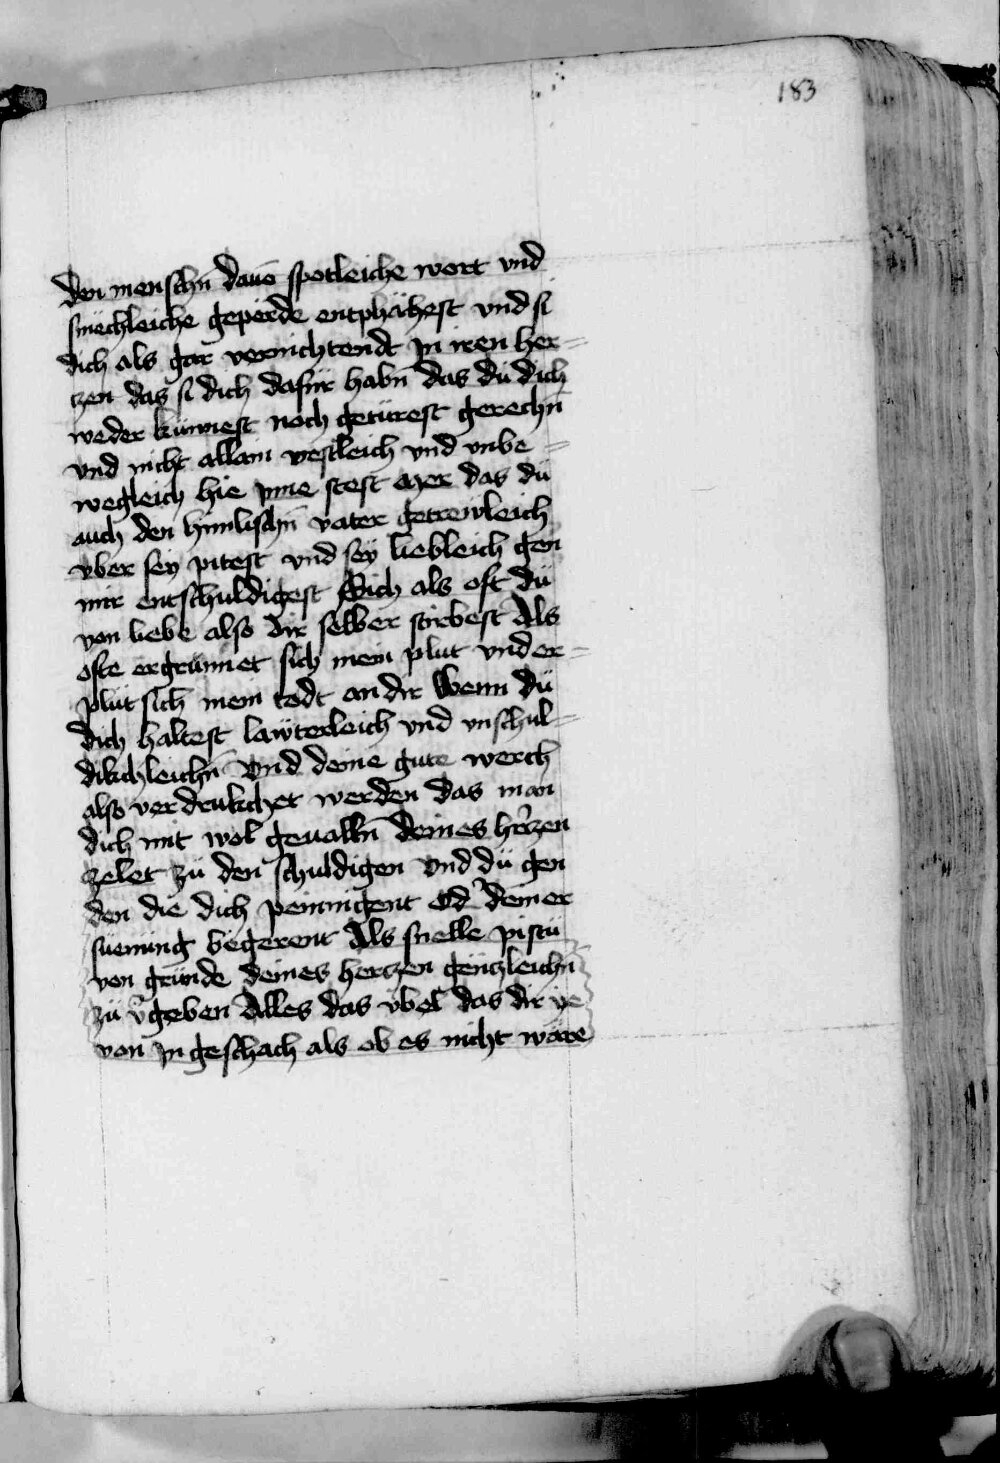 183
den menschn̄ dauō spotleiche wort vnd
smëchleiche gepërde entphähest vnd si
dich als gar vernichtendt jn iren her=
tzen das si dich dafür habn̄ das dü dich
weder künnest noch getürest gerechn̄
vnd nicht allain vestleich vnd vnbe=
wegleich hie jnne stest Mer das dü
auch den himlischn̄ vater getrewleich
vber sey pitest vnd sey liebleich gen
mir entschuldigest Sich als oft dü
von liebe also dir selber stirbest Als
ofte ergrünnet sich mein plut vnd er=
plüt sich mein todt an dir Wenn dü
dich haltest lawterleich vnd vnschul=
dikchleichn̄ Vnd deine gute werch
also verdrukchet werden das man
dich mit wol geualln̄ deines herczen
zelet zü den schuldigen Vnd dü gen
den die dich peinnigent Od' deiner
süenung begerent Als snelle pistü
von gründe deines herczen gënczleichn̄
zü v'geben Alles das vbel das dir ye
von jn geschach als ob es nicht wäre